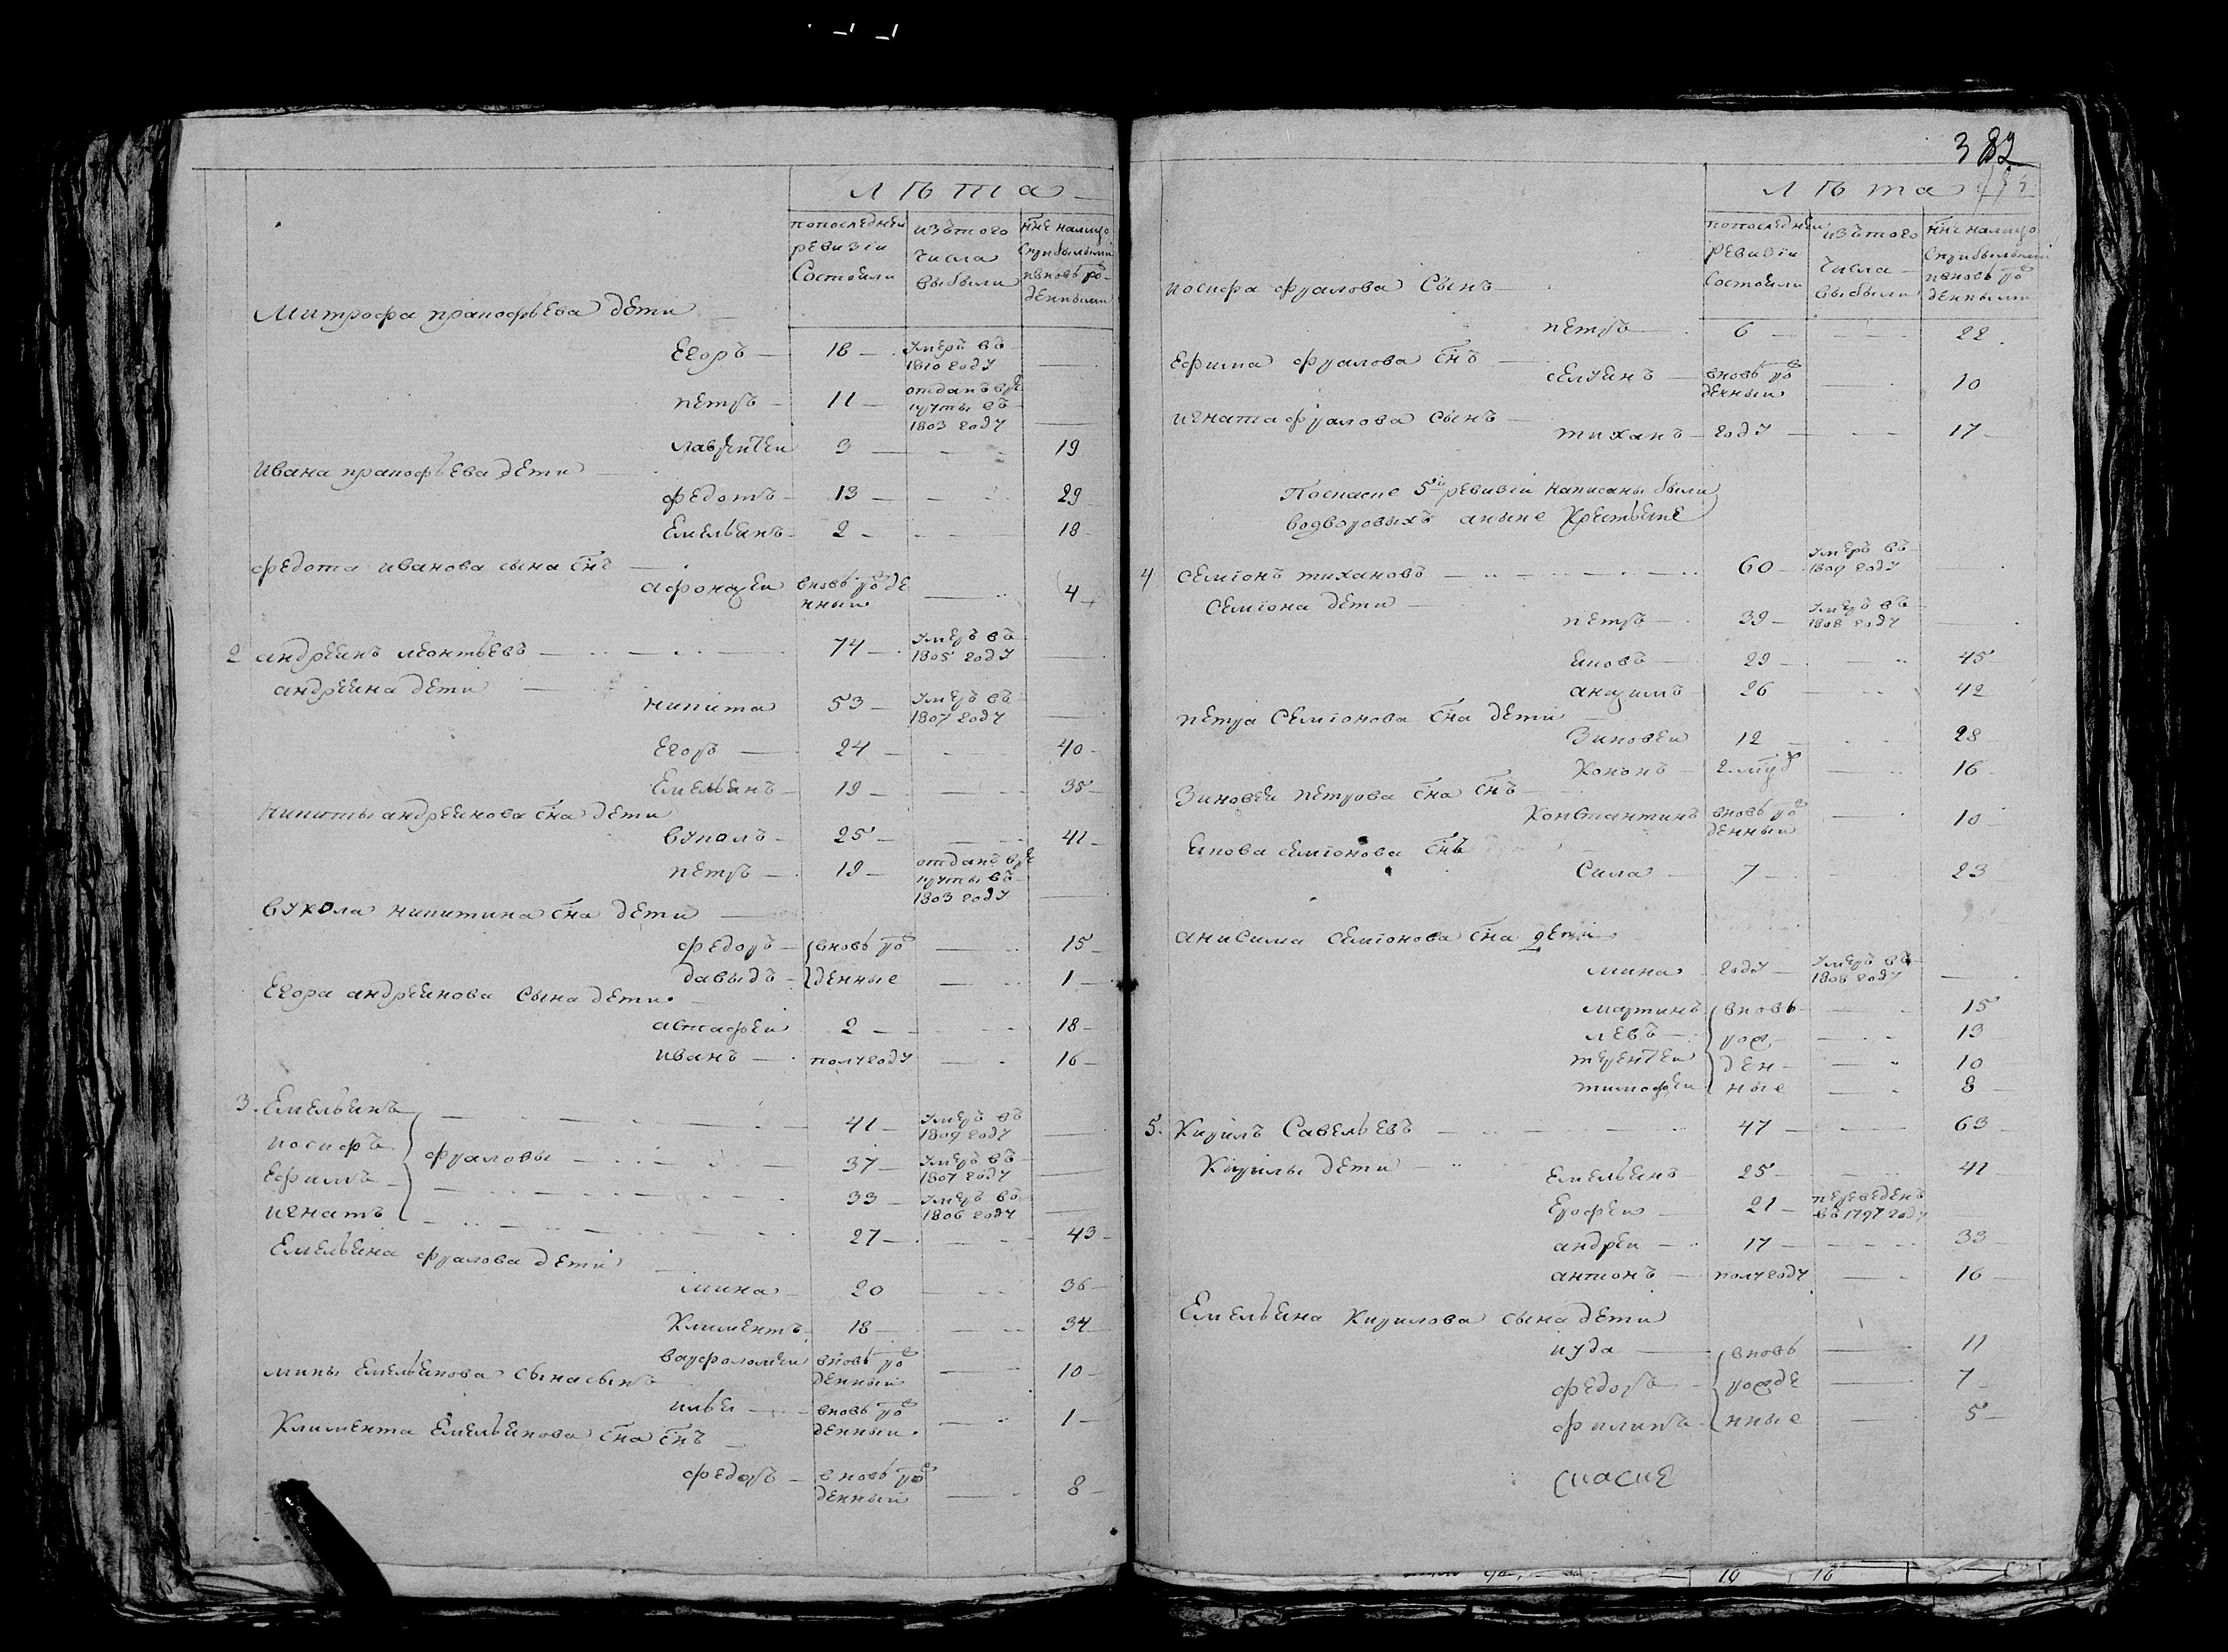 лѣта
попоследней ревизіи Состояли
изътого числа выбыли
н͞не налицо Сприбылыми ивновь рожденными
Митрофа пракофьева дети
Егоръ 18 умеръ въ 1810 году
петръ 11 отданъ врекруты въ 1803 году
лаврентеи 3 19
Ивана пракофьева дети
федотъ 13 29
Емельянъ 2 18
федота иванова сына с͞нъ
афонасеи вновь рожденныи 4
2 андреянъ леонтьевъ 74 умеръ въ 1805 году
андреяна дети
никита 53 умеръ въ 1807 году
Егоръ 24 40
Емельянъ 19 35
никиты андреянова с͞на дети
вуколъ 25 41
петръ 19 отданъ врекруты въ 1803 году
вукола никитина с͞на дети
федоръ вновь рож 15
давыдъ денные 1
Егора андреянова сына дети
астафеи 2 18
иванъ полугоду 16
3. Емельянъ 41 умеръ въ 1809 году
иосифъ фроловы 37 умеръ въ 1807 году
Ефимъ 33 умеръ въ 1806 году
игнатъ 27 43
Емельяна фролова дети
мина 20 36
Климентъ 18 34
варфоломеи вновь рожденныи 10
мины Емельянова сына сынъ
илья вновь рожденныи 1
Климента Емельянова с͞на с͞нъ
федоръ вновь рожденныи 8
382
лѣта
попоследней ревизіи Состояли
изътого числа выбыли
н͞не налицо Сприбылыми ивновь рожденными
иосифа фралова Сынъ
петръ 6 22
Ефима фралова с͞нъ
селуянъ вновь рожденныи 10
игната фралова Сынъ
тиханъ году 17
Поспаске 5й ревизіи написаны были
водворовыхъ аныне Крестьяне
4 Семіонъ тихановъ 60 умеръ въ 1809 году
Семіона дети
петръ 39 умеръ въ 1808 году
яковъ 29 45
анисимъ 26 42
петра Семіонова с͞на дети
Зиновеи 12 28
Кононъ 16
Зиновеи петрова с͞на с͞нъ
Константинъ вновь рожденныи 10
якова семіонова с͞нъ
Сила 7 23
анисима семіонова с͞на дети
мина году умеръ въ 1806 году
мартинъ вновь 15
левъ рож 13
терентеи ден 10
тимофеи ные 8
5. Кирилъ Савельевъ 47 63
Кирилы дети
Емельянъ 25 41
Ерофеи 21 переведенъ въ 1797 году
андреи 17 33
антонъ полугоду 16
Емельяна Кирилова сына дети
иуда вновь 11
федоръ рожде 7
филипъ нные 5